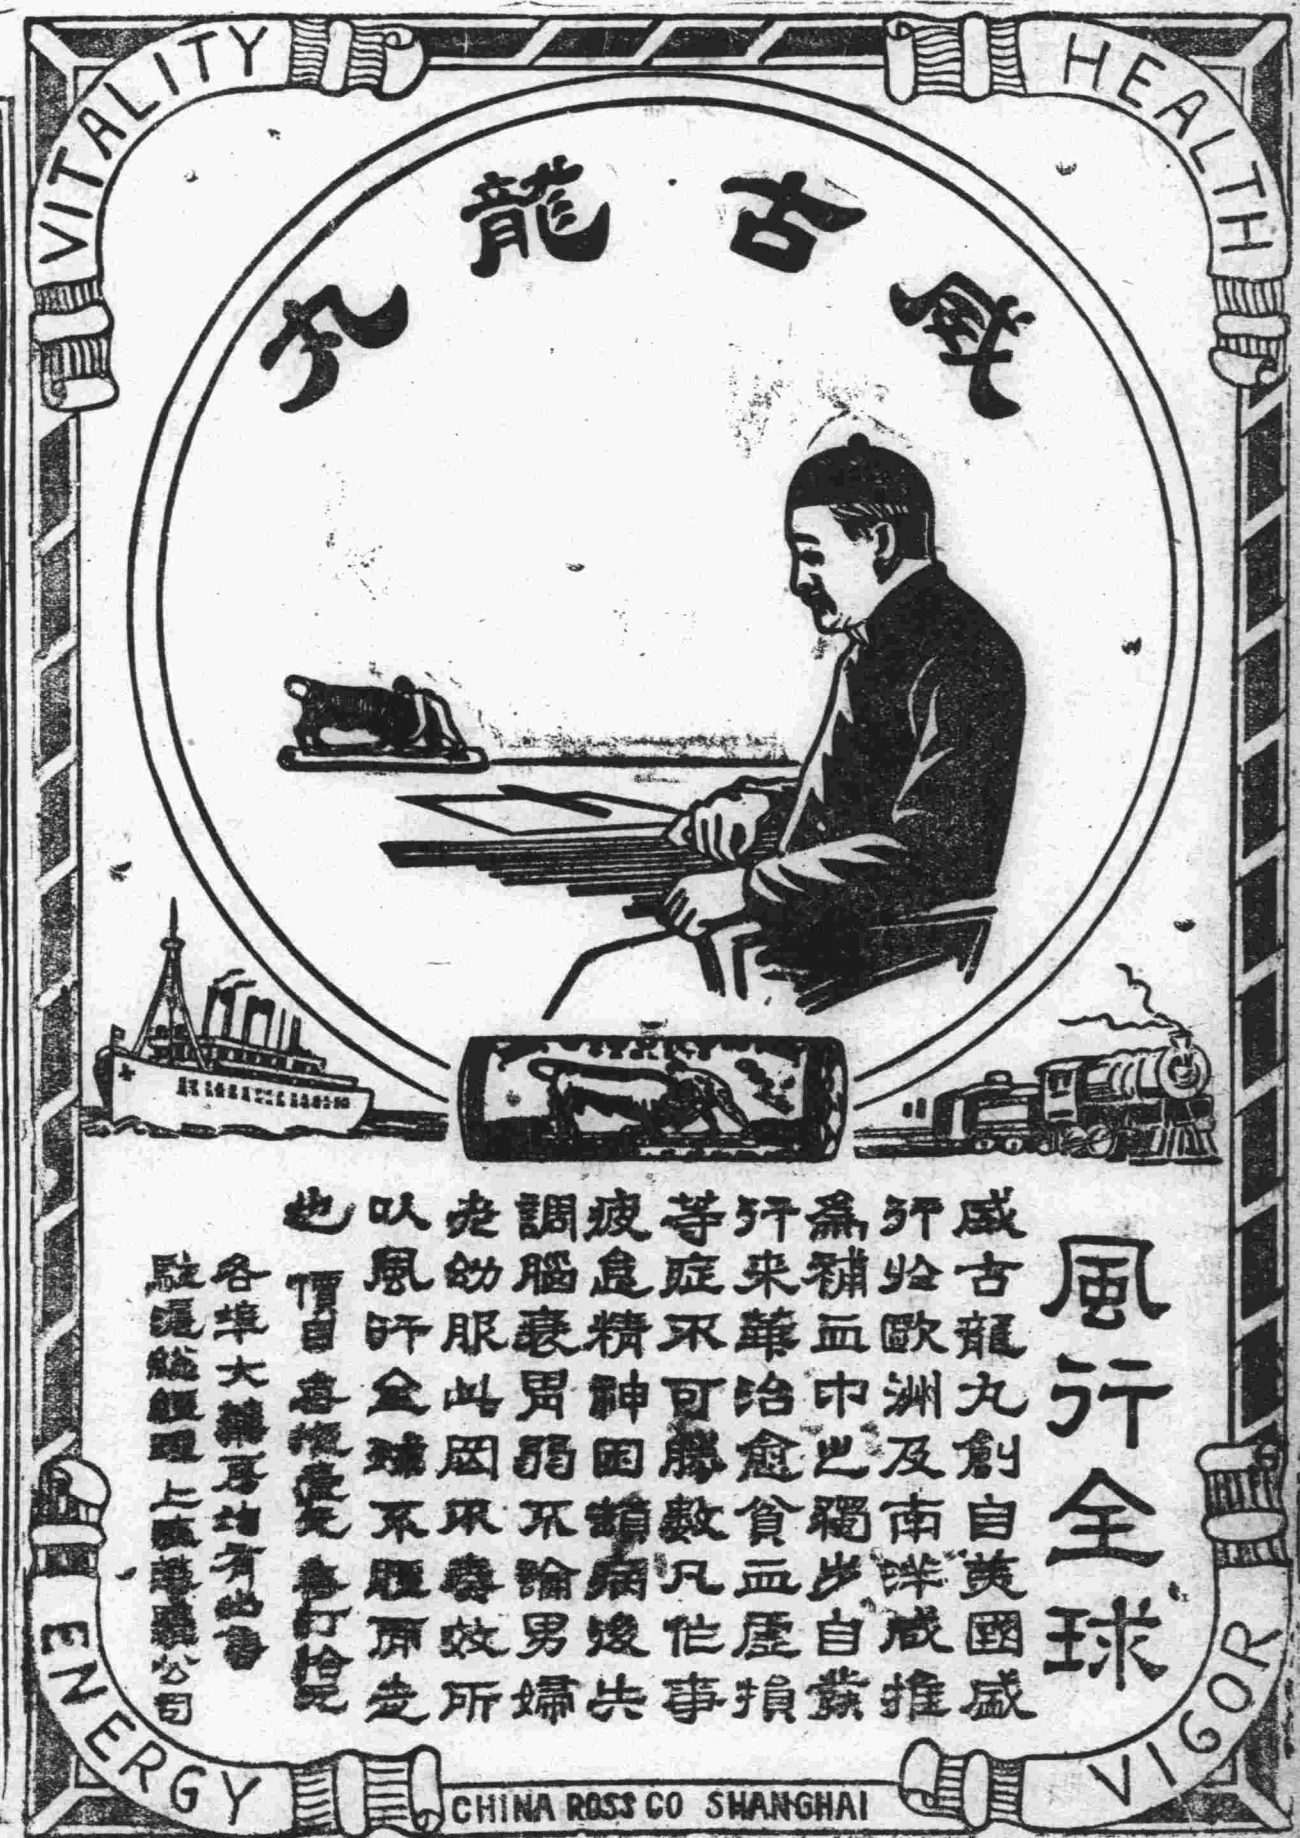 VITALITY
HEALTH
威古龍丸
風行全球
威古龍丸創自英國盛
行於歐洲及南洋咸推
為補血中之獨步自發
行来華治愈貧血虛損
等症不可勝數凡忙事
疲怠精神困顇病後失
調腦衰胃弱不論男婦
老幼服此因不奏效所
以風行全球不脛而走
也
價目 每瓶壹元 每打拾元
各埠大藥房均有出售
駐滬總經理上海 公司
ENERGY
VIGOR
CHINA ROSS CO SHANGHAI